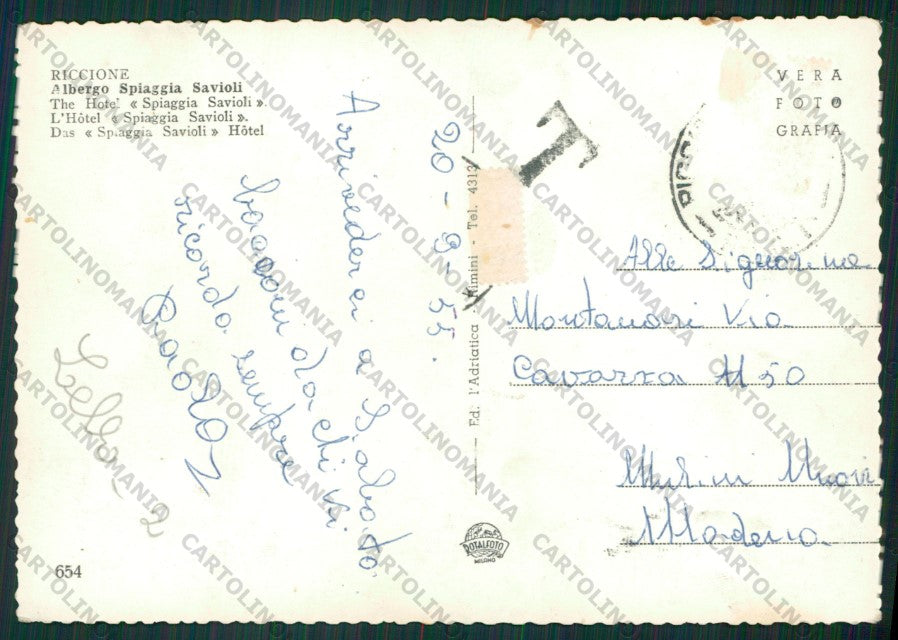 RICCIONE
Albergo Spiaggia Savioli
The Hotel « Spiaggia Savioli ».
L'Hôtel « Spiaggia Savioli ».
Das « Spiaggia Savioli » Hôtel
20-9-55.
Arrivederci a Sabato
bacioni da chi vi
ricorda sempre
Paolo
654
Ed. l'Adriatica Rimini - Tel. 4313
ROTALFOTO
MILANO
T
VERA
FOTO
GRAFIA
Alla Signorina
Montanari Via
Cavazza N 50
Mulini Nuovi
Modena
CARTOLINOMANIA